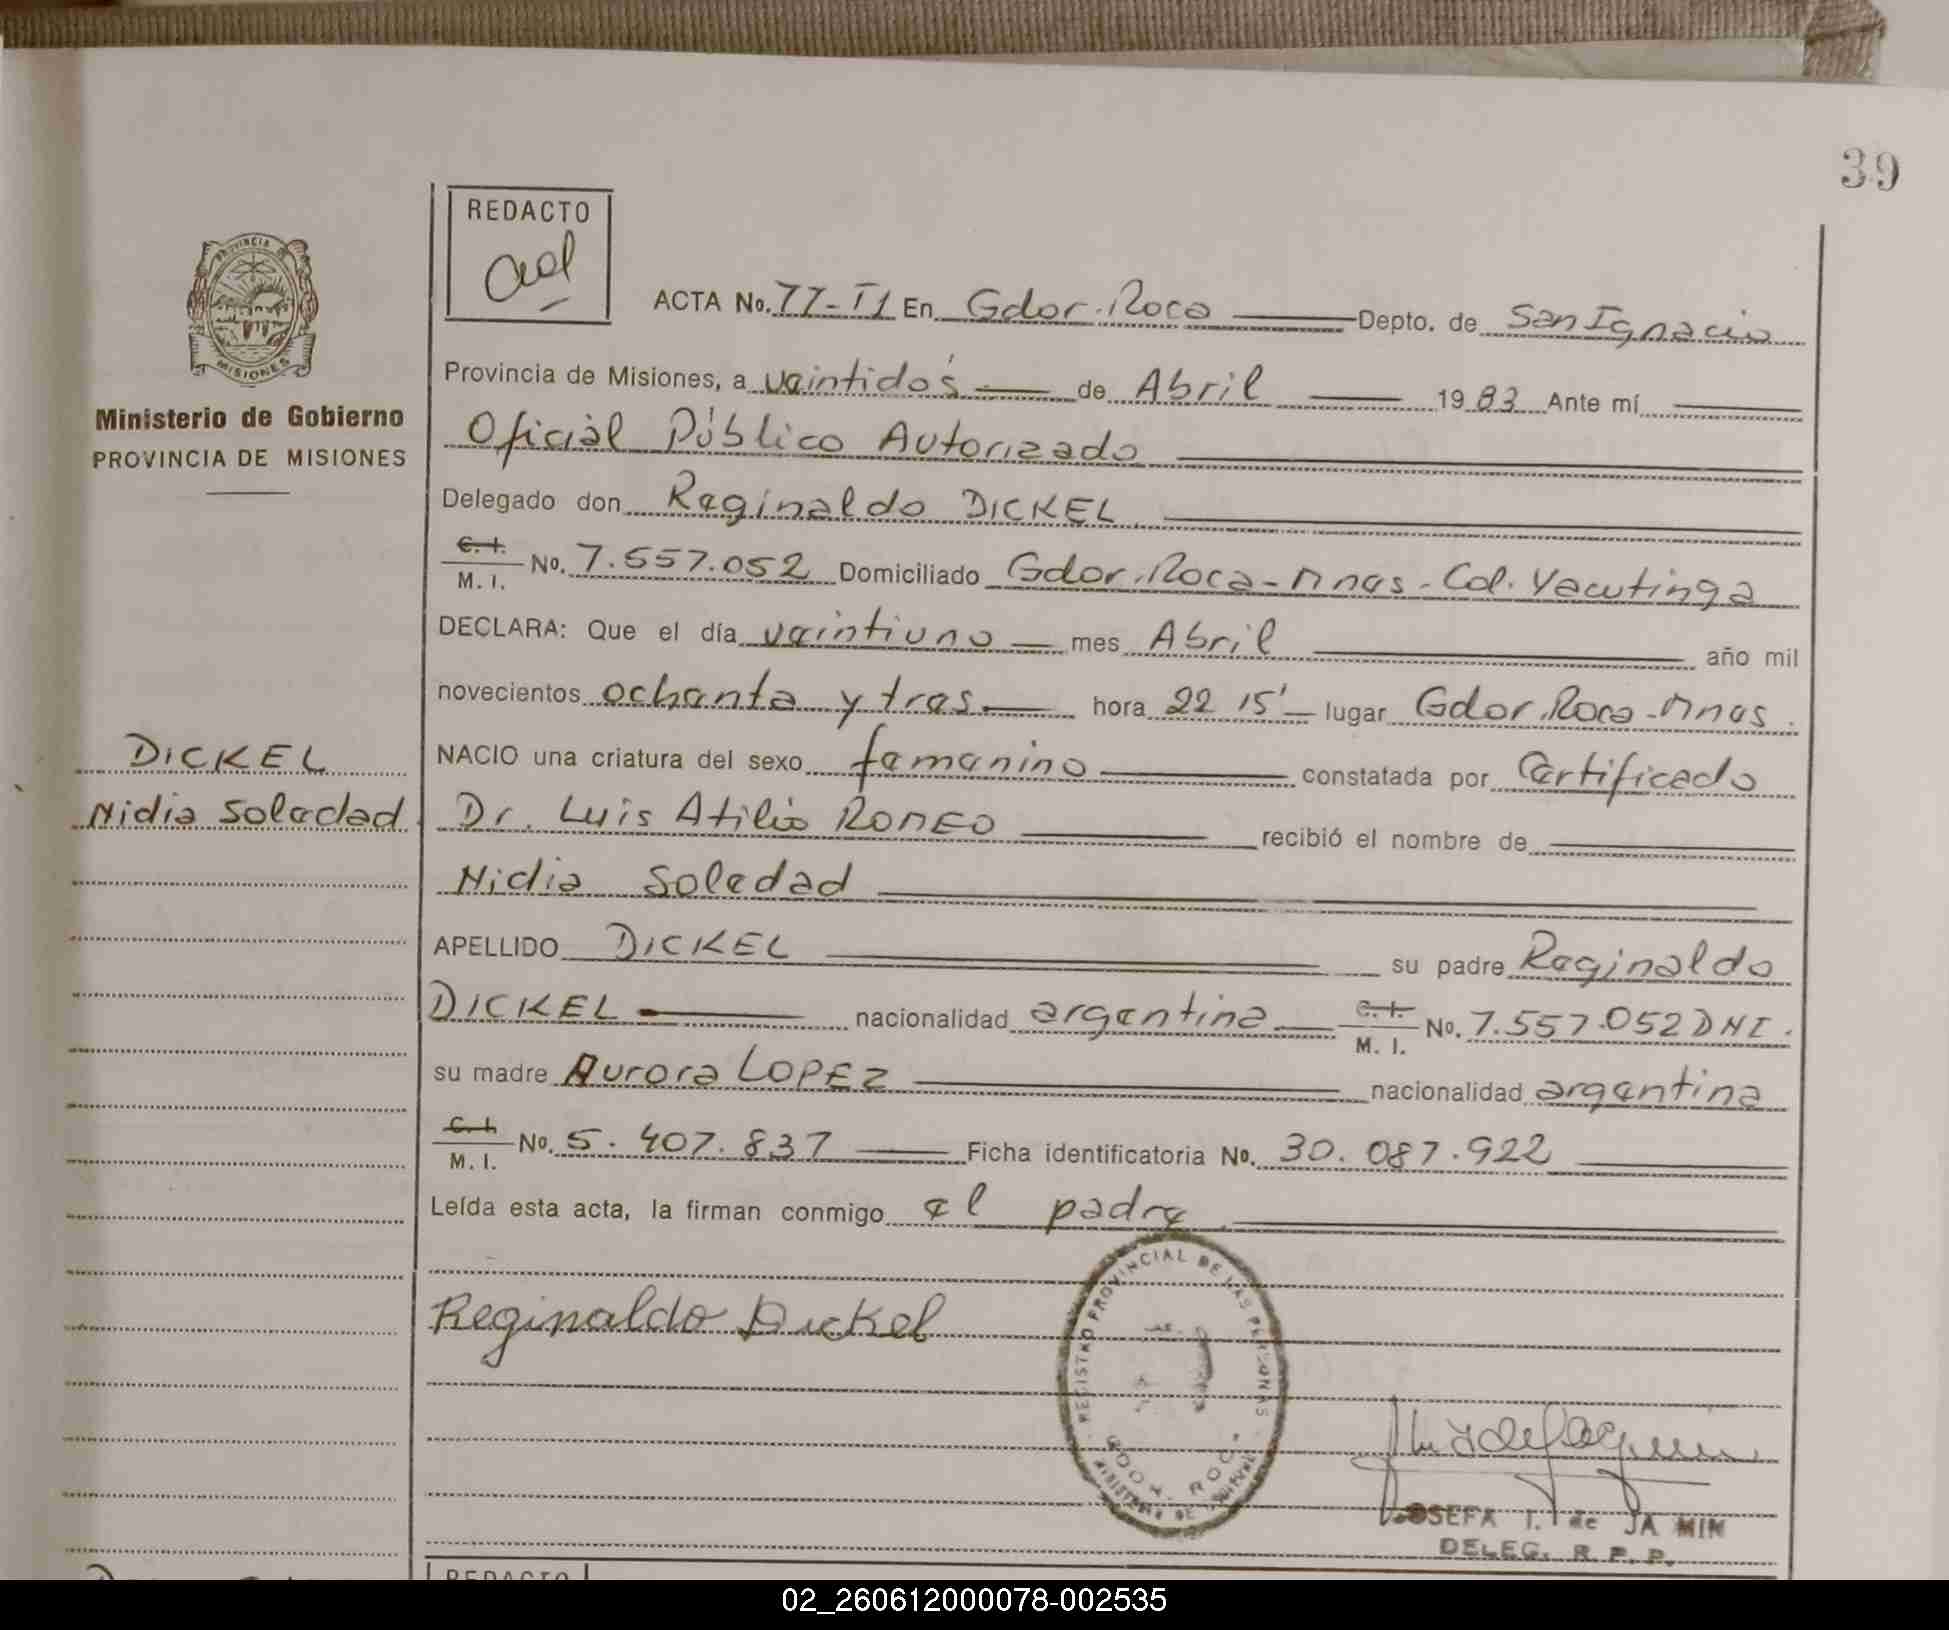 39
REDACTO
ad
ACTA No. 77-T1 En Gdor. Roca Depto. de San Ignacio
PROVINCIA
MISIONES
Provincia de Misiones, a veintidós de Abril 1983 Ante mí
Ministerio de Gobierno
PROVINCIA DE MISIONES
Oficial Público Autorizado
Delegado don Reginaldo DICKEL
C. I.
M. I. No. 7.557.052 Domiciliado Gdor. Roca - Mnes - Col. Yacutinga
DECLARA: Que el día veintiuno mes Abril año mil
novecientos ochenta y tres hora 22 15' lugar Gdor. Roca - Mnes.
DICKEL
Nidia Soledad
NACIO una criatura del sexo femenino constatada por Certificado
Dr. Luis Atilio ROMEO recibió el nombre de
Nidia Soledad
APELLIDO DICKEL su padre Reginaldo
DICKEL nacionalidad argentina C. I. M. I. No. 7.557.052 DNI.
su madre Aurora LOPEZ nacionalidad argentina
C. I.
M. I. No. 5.407.837 Ficha identificatoria No. 30.087.922
Leída esta acta, la firman conmigo el padre
Reginaldo Dickel
REGISTRO PROVINCIAL DE LAS PERSONAS
GDOR. ROCA
MINISTERIO DE GOBIERNO
JOSEFA I. de JA MIN
DELEG. R. P. P.
REDACTO
02_260612000078-002535